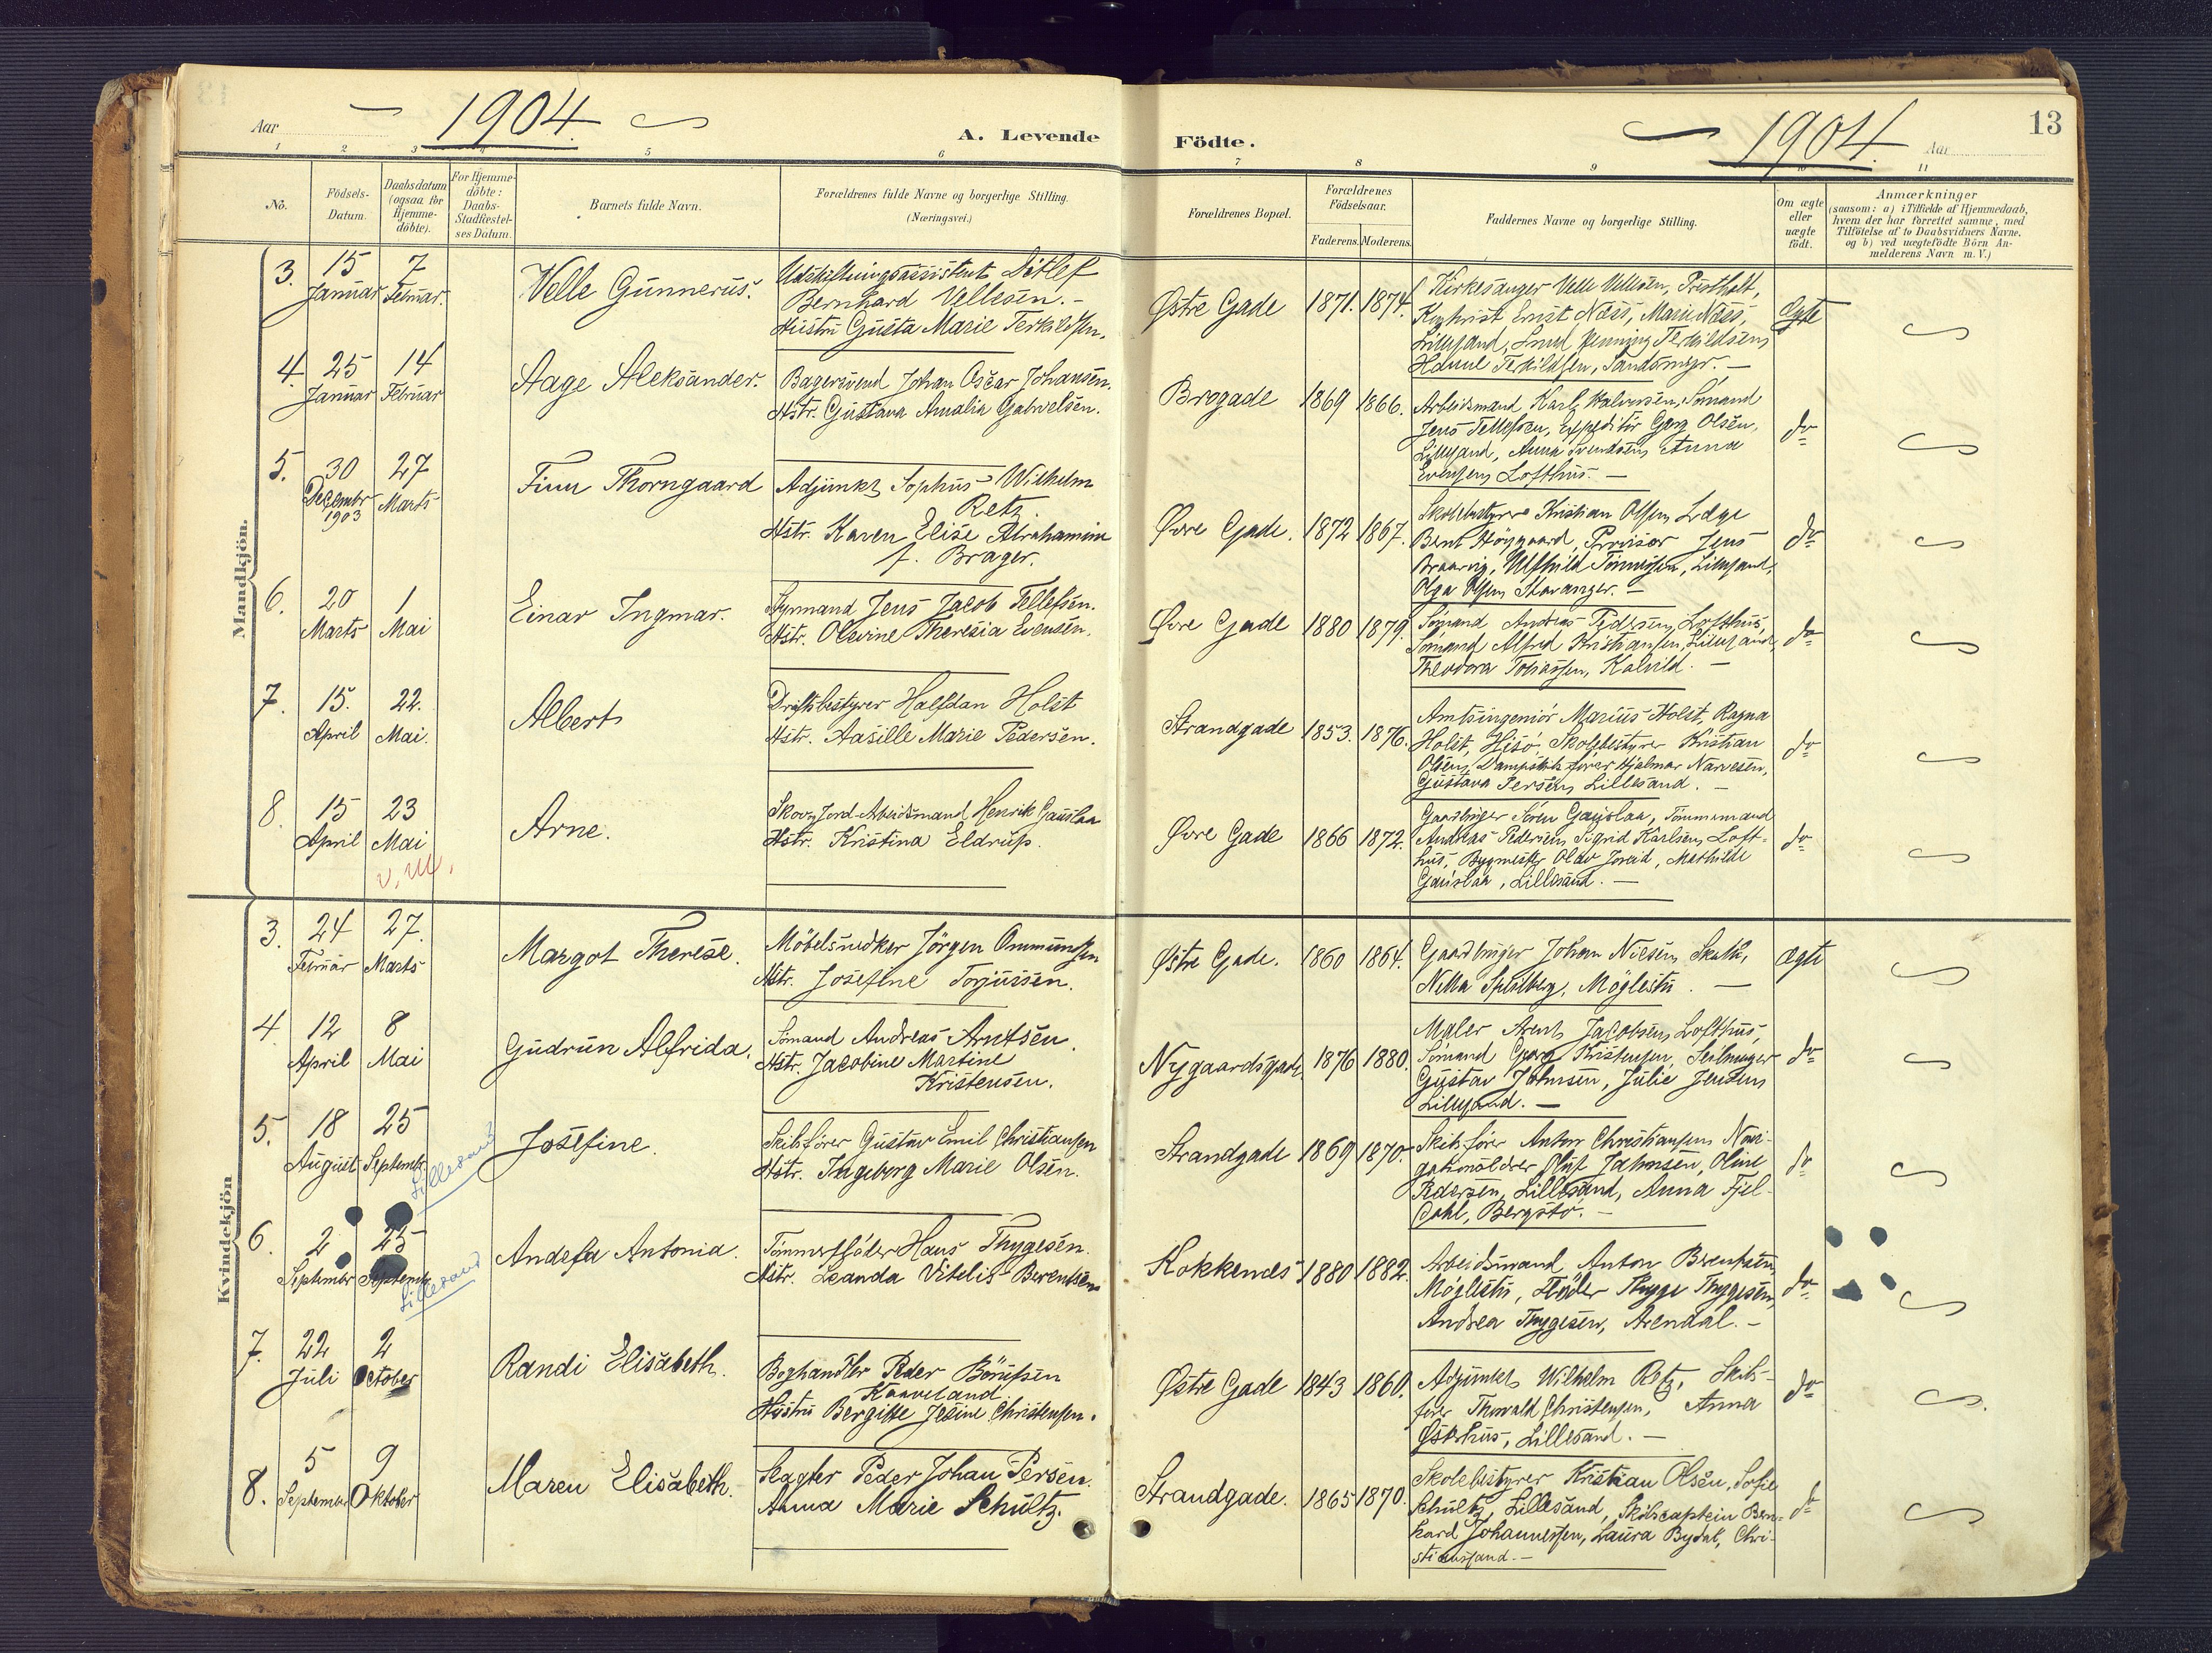 Aar 1904. A. Levende
Födte. 1904. Aar 13
1 2 3 4 5 6
7 8 9 10 11
No.
Födsels-
Datum.
Daabsdatum
(ogsaa for
Hjemme-
döbte).
For Hjemme-
döbte:
Daabs-
Stadfæstel-
ses Datum.
Barnets fulde Navn.
Forældrenes fulde Navne og borgerlige Stilling.
(Næringsvei.)
Forældrenes Bopæl.
Forældrenes
Födselsaar.
Faderens. Moderens.
Faddernes Navne og borgerlige Stilling.
Om ægte
eller
uægte
födt.
Anmærkninger
(saasom: a) i Tilfælde af Hjemmedaab,
hvem der har forrettet samme, med
Tilföielse af to Daabsvidners Navne.
og b) ved uægtefödte Börn An-
melderens Navn m. V.)
Mandkjön.
3. 15 Januar 7 Februar.
Velle Gunnerus.
Udskiftningsassistent Ditlef
Bernhard Vellesen.-
Hustru Gusta Marie Terkildsen.
Østre Gade 1871. 1874.
Kirkesanger Velle Vellesen,
Ernst Næss, Marie Næss,
Lillesand, Henning Terkildsen,
Terkildsen,
Ægte
4. 25 Januar 14 Februar
Aage Aleksander.
Bagersvend Johan Oscar Johansen.
Hstr. Gustava Amalia Gabrielsen.
Brogade 1869 1866.
Arbeidsmand Karl Halvorsen, Sømand
Jens Tellefsen, Expeditør Georg Olsen,
Lillesand, Anna Svendsen, Anna
Evensen, Lofthus. -
do
5. 30 Decembr 1903 27 Marts
Finn Thorngaard
Adjunkt Sophus Wilhelm
Retz.
Hstr. Karen Elise Abrahamine
f. Brager.
Øvre Gade. 1872 1867.
Skolebestyrer Kristian Olsen, Læge
Bent Höygaard, Provisor Jens
Braarvig, Ulfhild Tönnesen, Lillesand,
Olga Olsen, Stavanger. -
do
6. 20 Marts 1 Mai
Einar Ingmar.
Styrmand Jens Jacob Tellefsen.
Hstr. Olevine Theresia Evensen.
Øvre Gade 1880 1879.
Sømand Andreas Pedersen, Lofthus,
Sømand Alfred Kristiansen, Lillesand,
Theodora Tobiassen, Kalvild. -
do
7. 15. April 22. Mai.
Albert
Driftsbestyrer Halfdan Holst
Hstr. Aasille Marie Pedersen.
Strandgade 1853. 1876.
Amtsingeniør Marius Holst, Ragna
Holst, Hisö, Skolebestyrer Kristian
Olsen, Dampskibsfører Hjalmar Narvesen,
Gustava Persen, Lillesand. -
do
8. 15 April 23 Mai
v. m.
Arne.
Skov- Jord-Arbeidsmand Henrik Gauslaa
Hstr. Kristina Eldrup.
Øvre Gade 1866 1872.
Gaardbruger Sören Gauslaa, Tömmermand
Andreas Pedersen, Sigrid Karlsen, Loft-
hus, Bygmester Olav Joreid, Mathilde
Gauslaa, Lillesand. -
do
Kvindekjön
3. 24 Februar 27. Marts
Margot Therese.
Möbelsnedker Jörgen Ommundsen
Hstr. Josefine Torjussen.
Østre Gade. 1860 1864.
Gaardbruger Johan Nilsen,
Möglestu. -
ægte
4. 12 April 8 Mai
Gudrun Alfrida.
Sømand Andreas Arntsen.
Hstr. Jacobine Martine
Kristensen.
Nygaardsgade. 1876 1880.
Maler Arent Jacobsen, Lofthus,
Sømand Georg Kristensen, Seilmager
Gustav Johnsen, Julie Jensen,
Lillesand. -
do
5. 18 August 25 Septembr.
Lillesand
Josefine.
Skibsfører Gustav Emil Christiansen
Hstr. Ingeborg Marie Olsen.
Strandgade 1869 1870.
Skibsfører Anton Christiansen, Navi-
gationslærer Oluf Jahnsen, Oline
Pedersen, Lillesand, Anna Fjel-
dahl, Bergstö. -
do
6. 2 Septembr 25 Septembr
Lillesand
Andefa Antonia.
Tömmerfløder Hans Thygesen.
Hstr. Leanda Vitelis Berentsen
Kokkenes 1880 1882.
Arbeidsmand Anton Berentsen,
Möglestu, Fløder Thygge Thygesen,
Andrea Thygesen, Arendal. -
do
7. 22 Juli 2 October
Randi Elisabeth.
Boghandler Peder Börufsen
Kaaveland
Hustru Bergitte Jesine Christensen.
Østre Gade 1843 1860.
Adjunkt Wilhelm Retz, Skibs-
fører Thorvald Christensen, Anna
Østerhus, Lillesand. -
do
8. 5 September 9 Oktober
Maren Elisabeth.
Slagter Peder Johan Persen.
Anna Marie Schultz.
Strandgade. 1865 1870.
Skolebestyrer Kristian Olsen, Sofie
Schultz, Lillesand, Skibscaptein Bern-
hard Johannessen, Laura Bydal, Chri-
stianssand. -
do